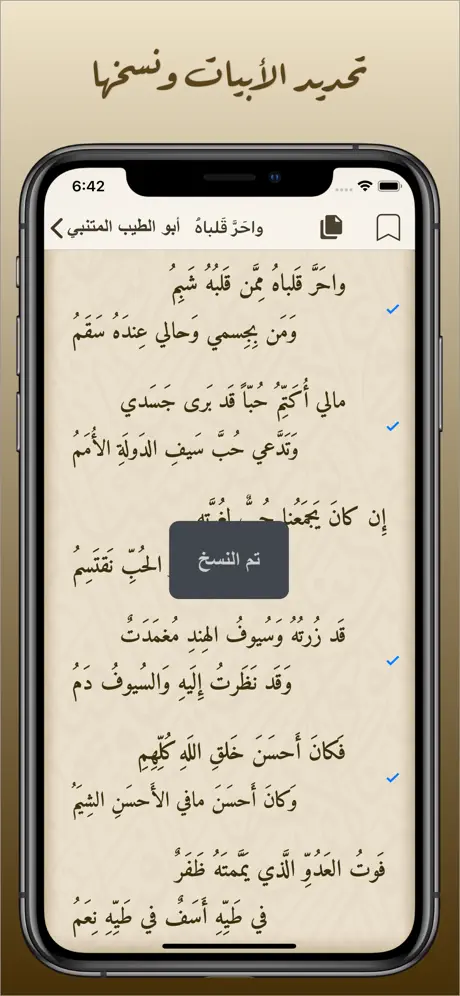 تحديد الأبيات ونسخها
6:42
أبو الطيب المتنبي واحَرَّ قَلباهُ
واحَرَّ قَلباهُ مِمَّن قَلبُهُ شَبِمُ
وَمَن بِجِسمي وَحالي عِندَهُ سَقَمُ
مالي أُكَتِّمُ حُبّاً قَد بَرى جَسَدي
وَتَدَّعي حُبَّ سَيفِ الدَولَةِ الأُمَمُ
إِن كانَ يَجمَعُنا حُبٌّ لِغُرَّتِهِ
الحُبِّ نَقتَسِمُ
تم النسخ
قَد زُرتُهُ وَسُيوفُ الهِندِ مُغمَدَتٌ
وَقَد نَظَرتُ إِلَيهِ وَالسُيوفُ دَمُ
فَكانَ أَحسَنَ خَلقِ اللَهِ كُلِّهِمِ
وَكانَ أَحسَنَ مافي الأَحسَنِ الشِيَمُ
فَوتُ العَدُوِّ الَّذي يَمَّمتَهُ ظَفَرٌ
في طَيِّهِ أَسَفٌ في طَيِّهِ نِعَمُ